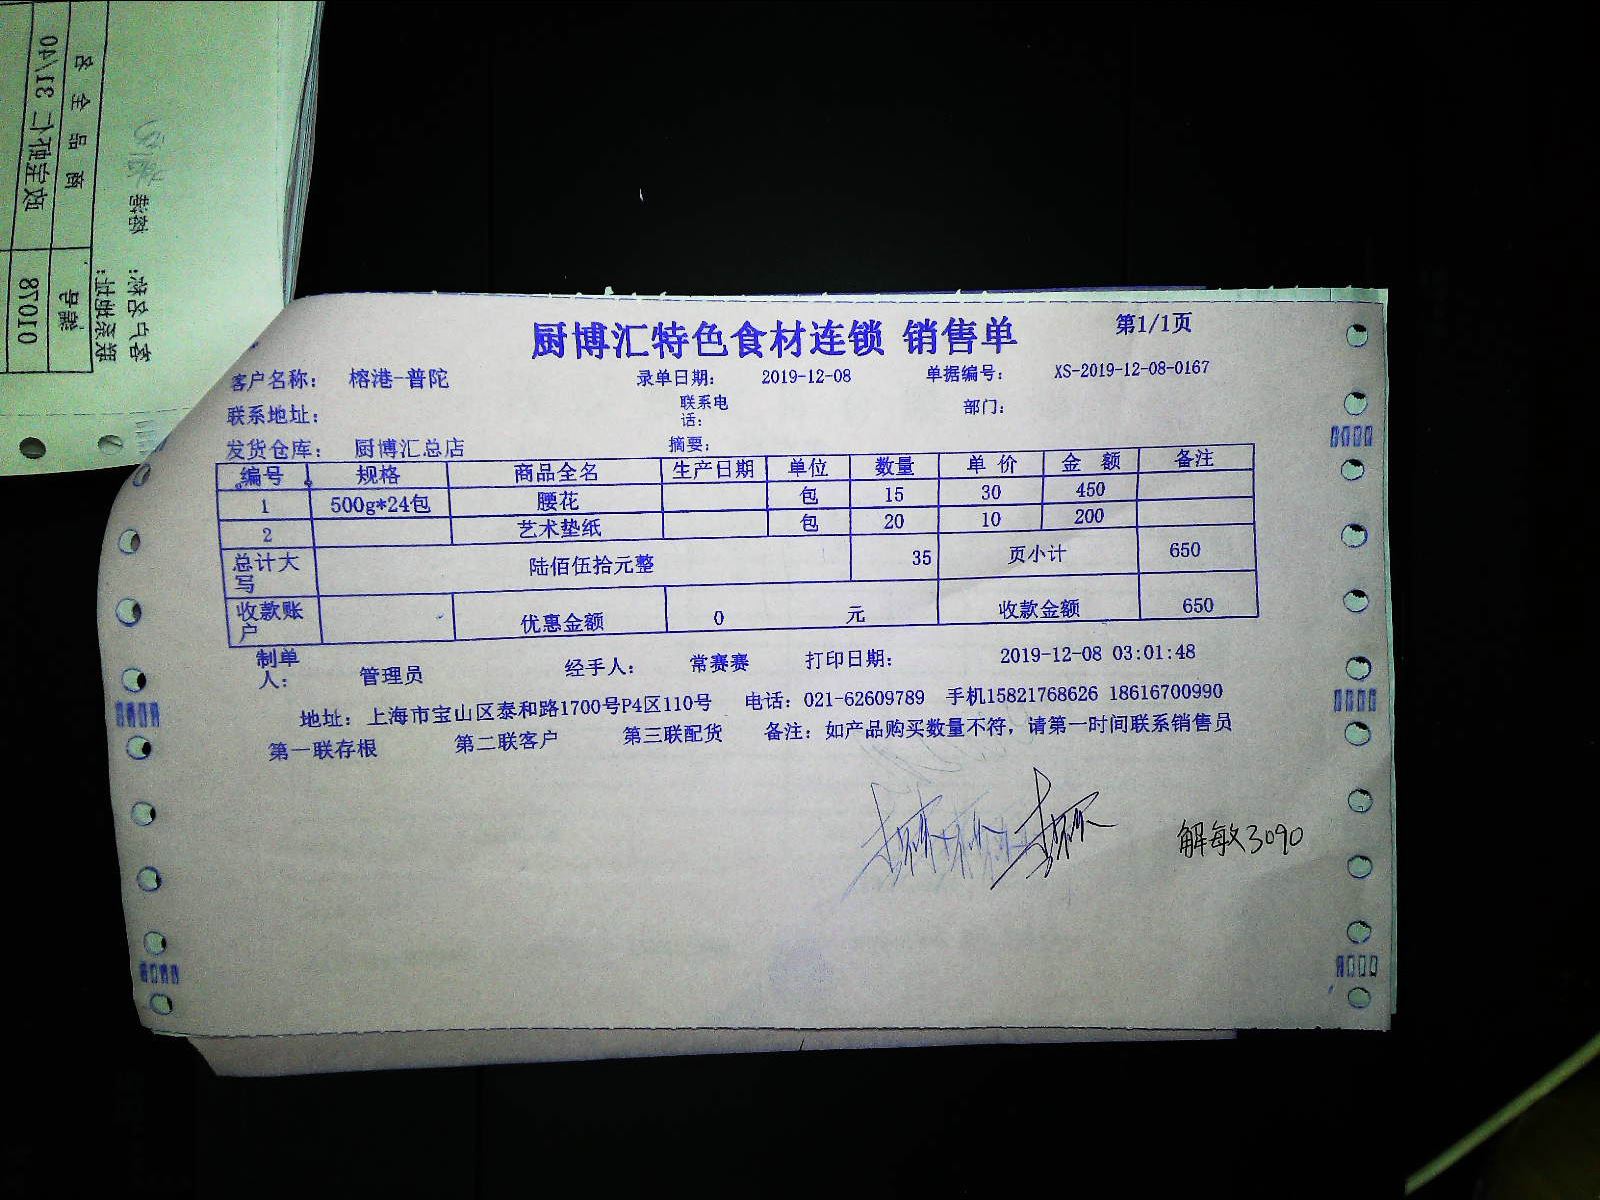 厨博汇特色食材连锁 销售单 第1/1页
客户名称： 榕港-普陀 录单日期： 2019-12-08 单据编号： XS-2019-12-08-0167
联系地址： 联系电话： 部门：
发货仓库： 厨博汇总店 摘要：
编号 规格 商品全名 生产日期 单位 数量 单价 金额 备注
1 500g*24包 腰花 包 15 30 450
2 艺术垫纸 包 20 10 200
总计大写 陆佰伍拾元整 35 页小计 650
收款账户 优惠金额 0 元 收款金额 650
制单人： 管理员 经手人： 常赛赛 打印日期： 2019-12-08 03:01:48
地址：上海市宝山区泰和路1700号P4区110号 电话：021-62609789 手机15821768626 18616700990
第一联存根 第二联客户 第三联配货 备注：如产品购买数量不符，请第一时间联系销售员
解敏3090
商品全名
编号
01078
客户名称：
联系地址：